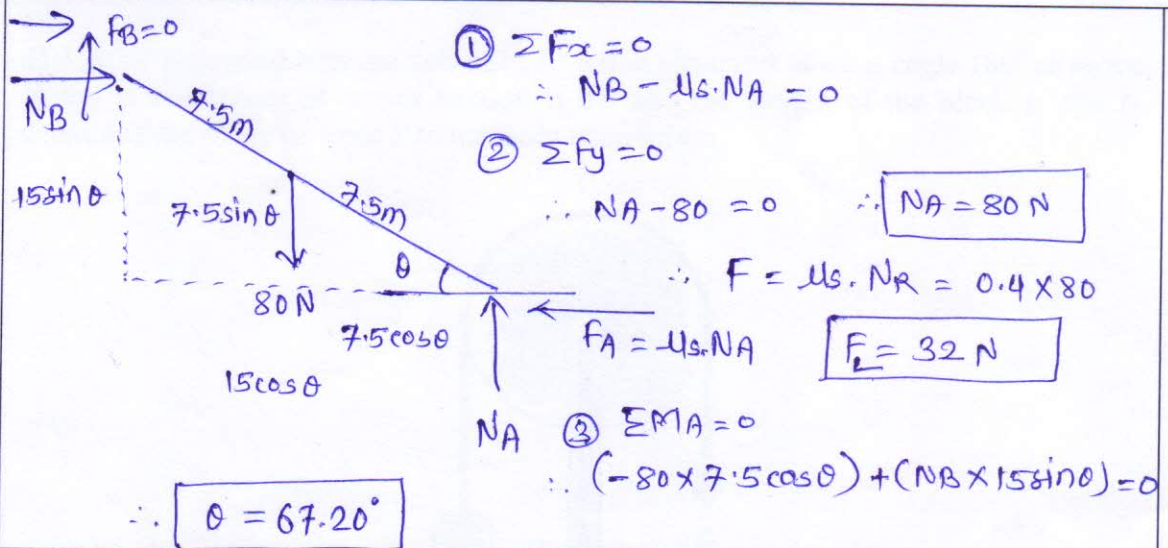 fB=0
NB
7.5m
15sinθ
7.5sinθ
7.5m
θ
80N
7.5cosθ
15cosθ
NA
FA = μs.NA
① ΣFx = 0
∴ NB - μs.NA = 0
② Σfy = 0
∴ NA - 80 = 0 ∴ NA = 80 N
∴ F = μs. NR = 0.4 × 80
F = 32 N
③ ΣMA = 0
∴ (-80 × 7.5cosθ) + (NB × 15sinθ) = 0
∴ θ = 67.20°